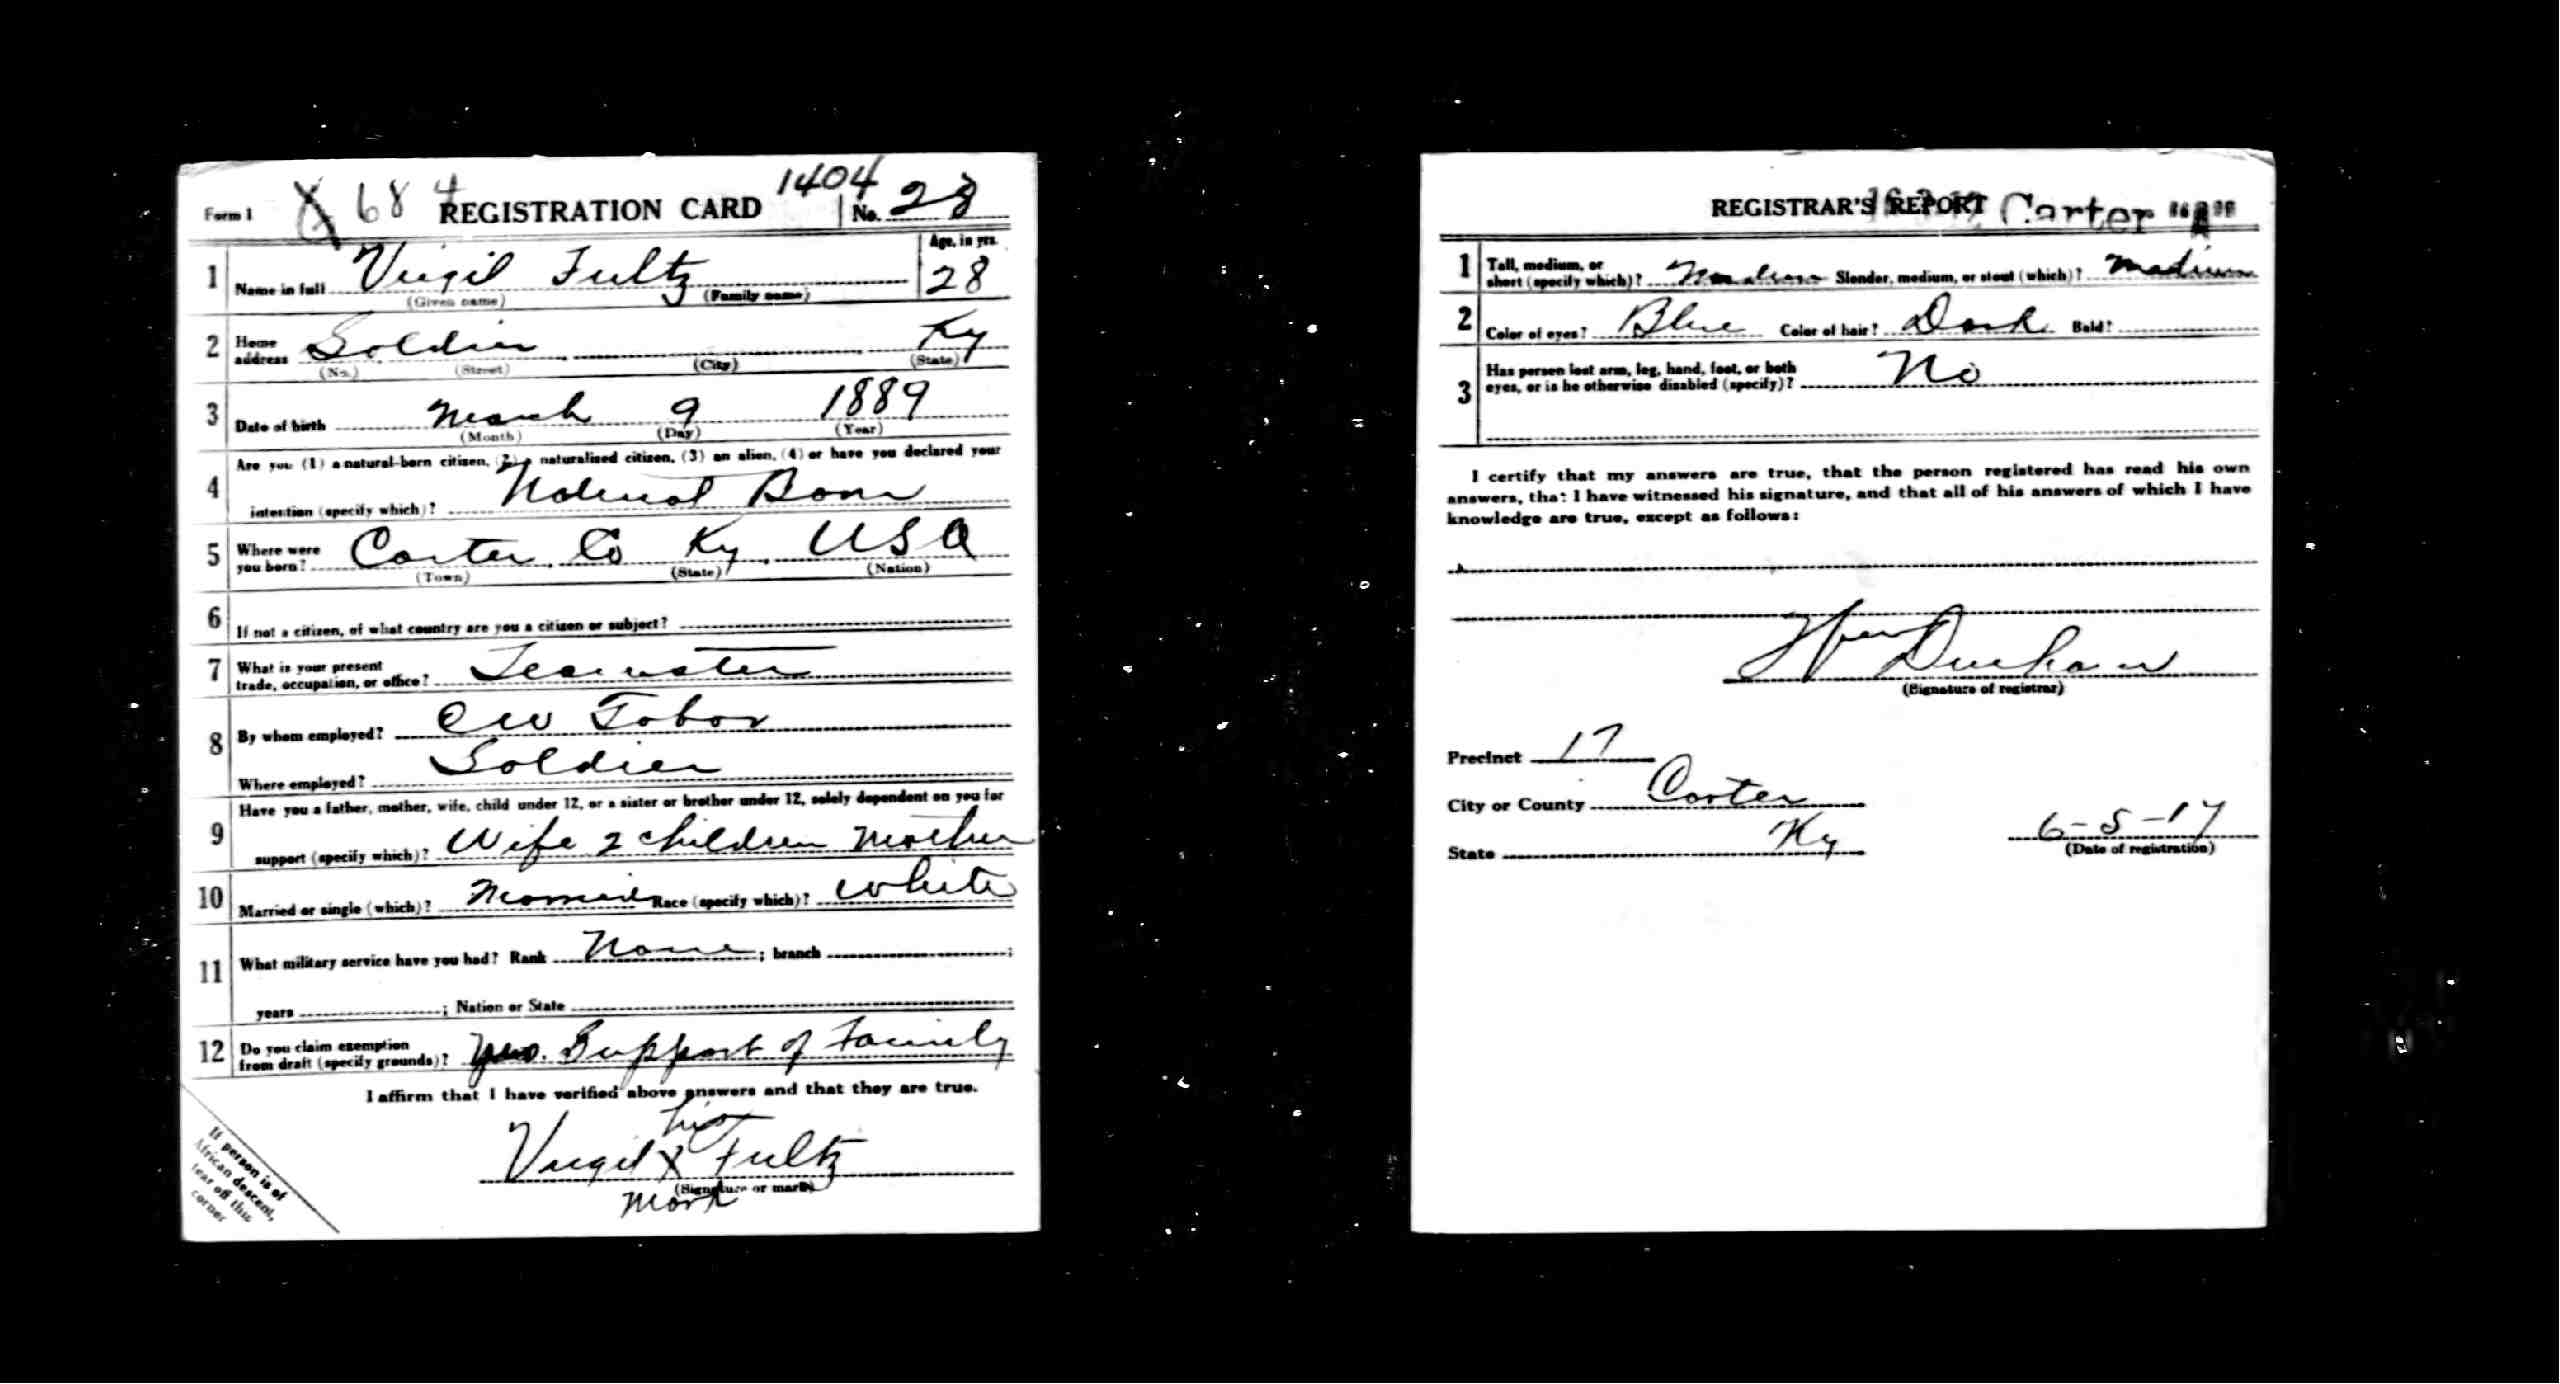 1404
Form 1 684 REGISTRATION CARD No. 28
1 Name in full Virgil Fultz Age, in yrs. 28
(Given name) (Family name)
2 Home address Soldier Ky
(No.) (Street) (City) (State)
3 Date of birth March 9 1889
(Month) (Day) (Year)
4 Are you (1) a natural-born citizen, (2) a naturalized citizen, (3) an alien, (4) or have you declared your
intention (specify which)? Natural Born
5 Where were you born? Carter Co Ky USA
(Town) (State) (Nation)
6 If not a citizen, of what country are you a citizen or subject?
7 What is your present trade, occupation, or office? Teamster
8 By whom employed? C W Tabor
Where employed? Soldier
9 Have you a father, mother, wife, child under 12, or a sister or brother under 12, solely dependent on you for
support (specify which)? Wife 2 children Mother
10 Married or single (which)? Married Race (specify which)? White
11 What military service have you had? Rank None ; branch ;
years ; Nation or State
12 Do you claim exemption from draft (specify grounds)? Yes. Support of Family
I affirm that I have verified above answers and that they are true.
his
Virgil X Fultz
(Signature or mark)
Mark
If person is of
African descent,
tear off this
corner
REGISTRAR'S REPORT Carter "A"
1 Tall, medium, or short (specify which)? Medium Slender, medium, or stout (which)? Medium
2 Color of eyes? Blue Color of hair? Dark Bald?
3 Has person lost arm, leg, hand, foot, or both
eyes, or is he otherwise disabled (specify)? No
I certify that my answers are true, that the person registered has read his own
answers, that I have witnessed his signature, and that all of his answers of which I have
knowledge are true, except as follows:
Durham
(Signature of registrar)
Precinct 17
City or County Carter
State Ky 6-5-17
(Date of registration)